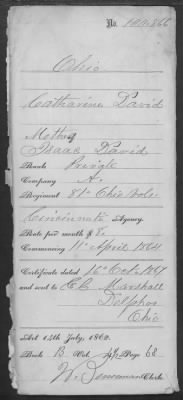 No.
Ohio
Catharine David
Mother
Isaac David
Rank Private
Company A.
Regiment 81st Ohio Vols.
Cincinnati Agency.
Rate per month $8.
Commencing 11th April 1864
Certificate dated 16th Oct. 1867
and sent to E. B. Marshall
Delphos
Ohio
Act 14th July, 1862.
Book B Vol. Page 68
W. Clerk